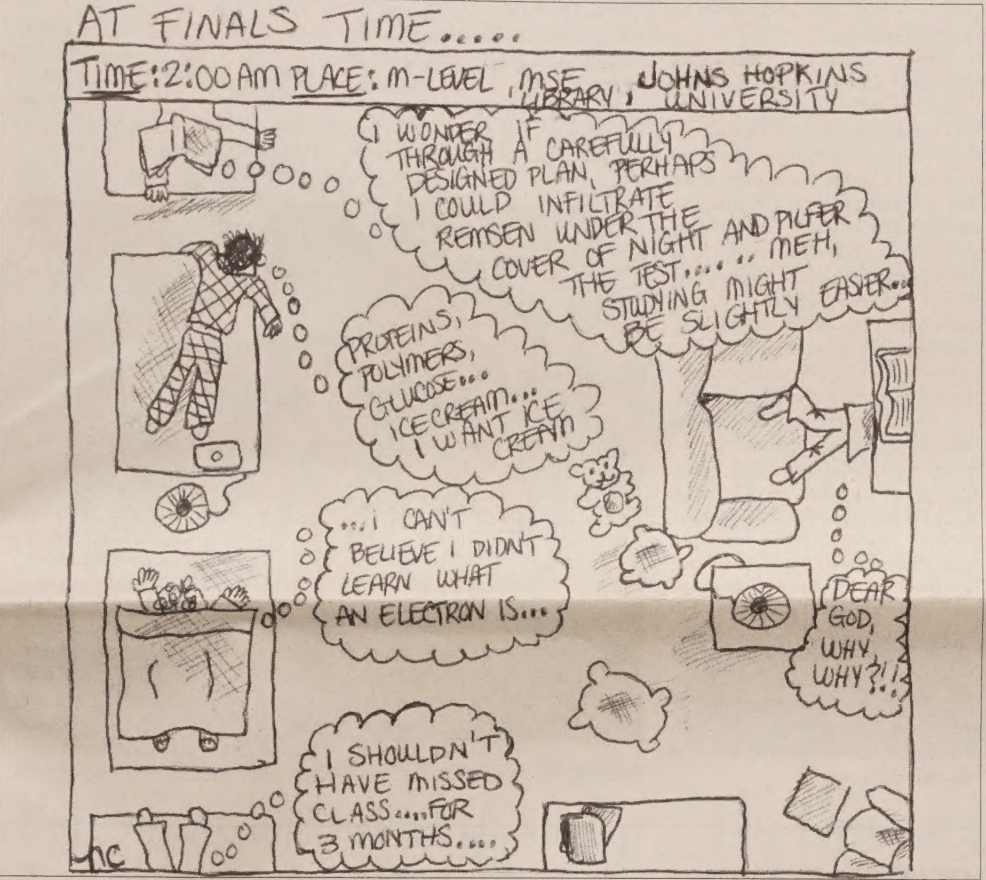 AT FINALS TIME.....
TIME: 2:00 AM PLACE: M-LEVEL, MSE LIBRARY, JOHNS HOPKINS UNIVERSITY
I WONDER IF
THROUGH A CAREFULLY
DESIGNED PLAN, PERHAPS
I COULD INFILTRATE
REMSEN UNDER THE
COVER OF NIGHT AND PILFER
THE TEST...... MEH,
STUDYING MIGHT
BE SLIGHTLY EASIER...
PROTEINS,
POLYMERS,
GLUCOSE...
ICECREAM...
I WANT ICE
CREAM
...I CAN'T
BELIEVE I DIDN'T
LEARN WHAT
AN ELECTRON IS...
DEAR
GOD,
WHY,
WHY?!!
I SHOULDN'T
HAVE MISSED
CLASS....FOR
3 MONTHS....
nc